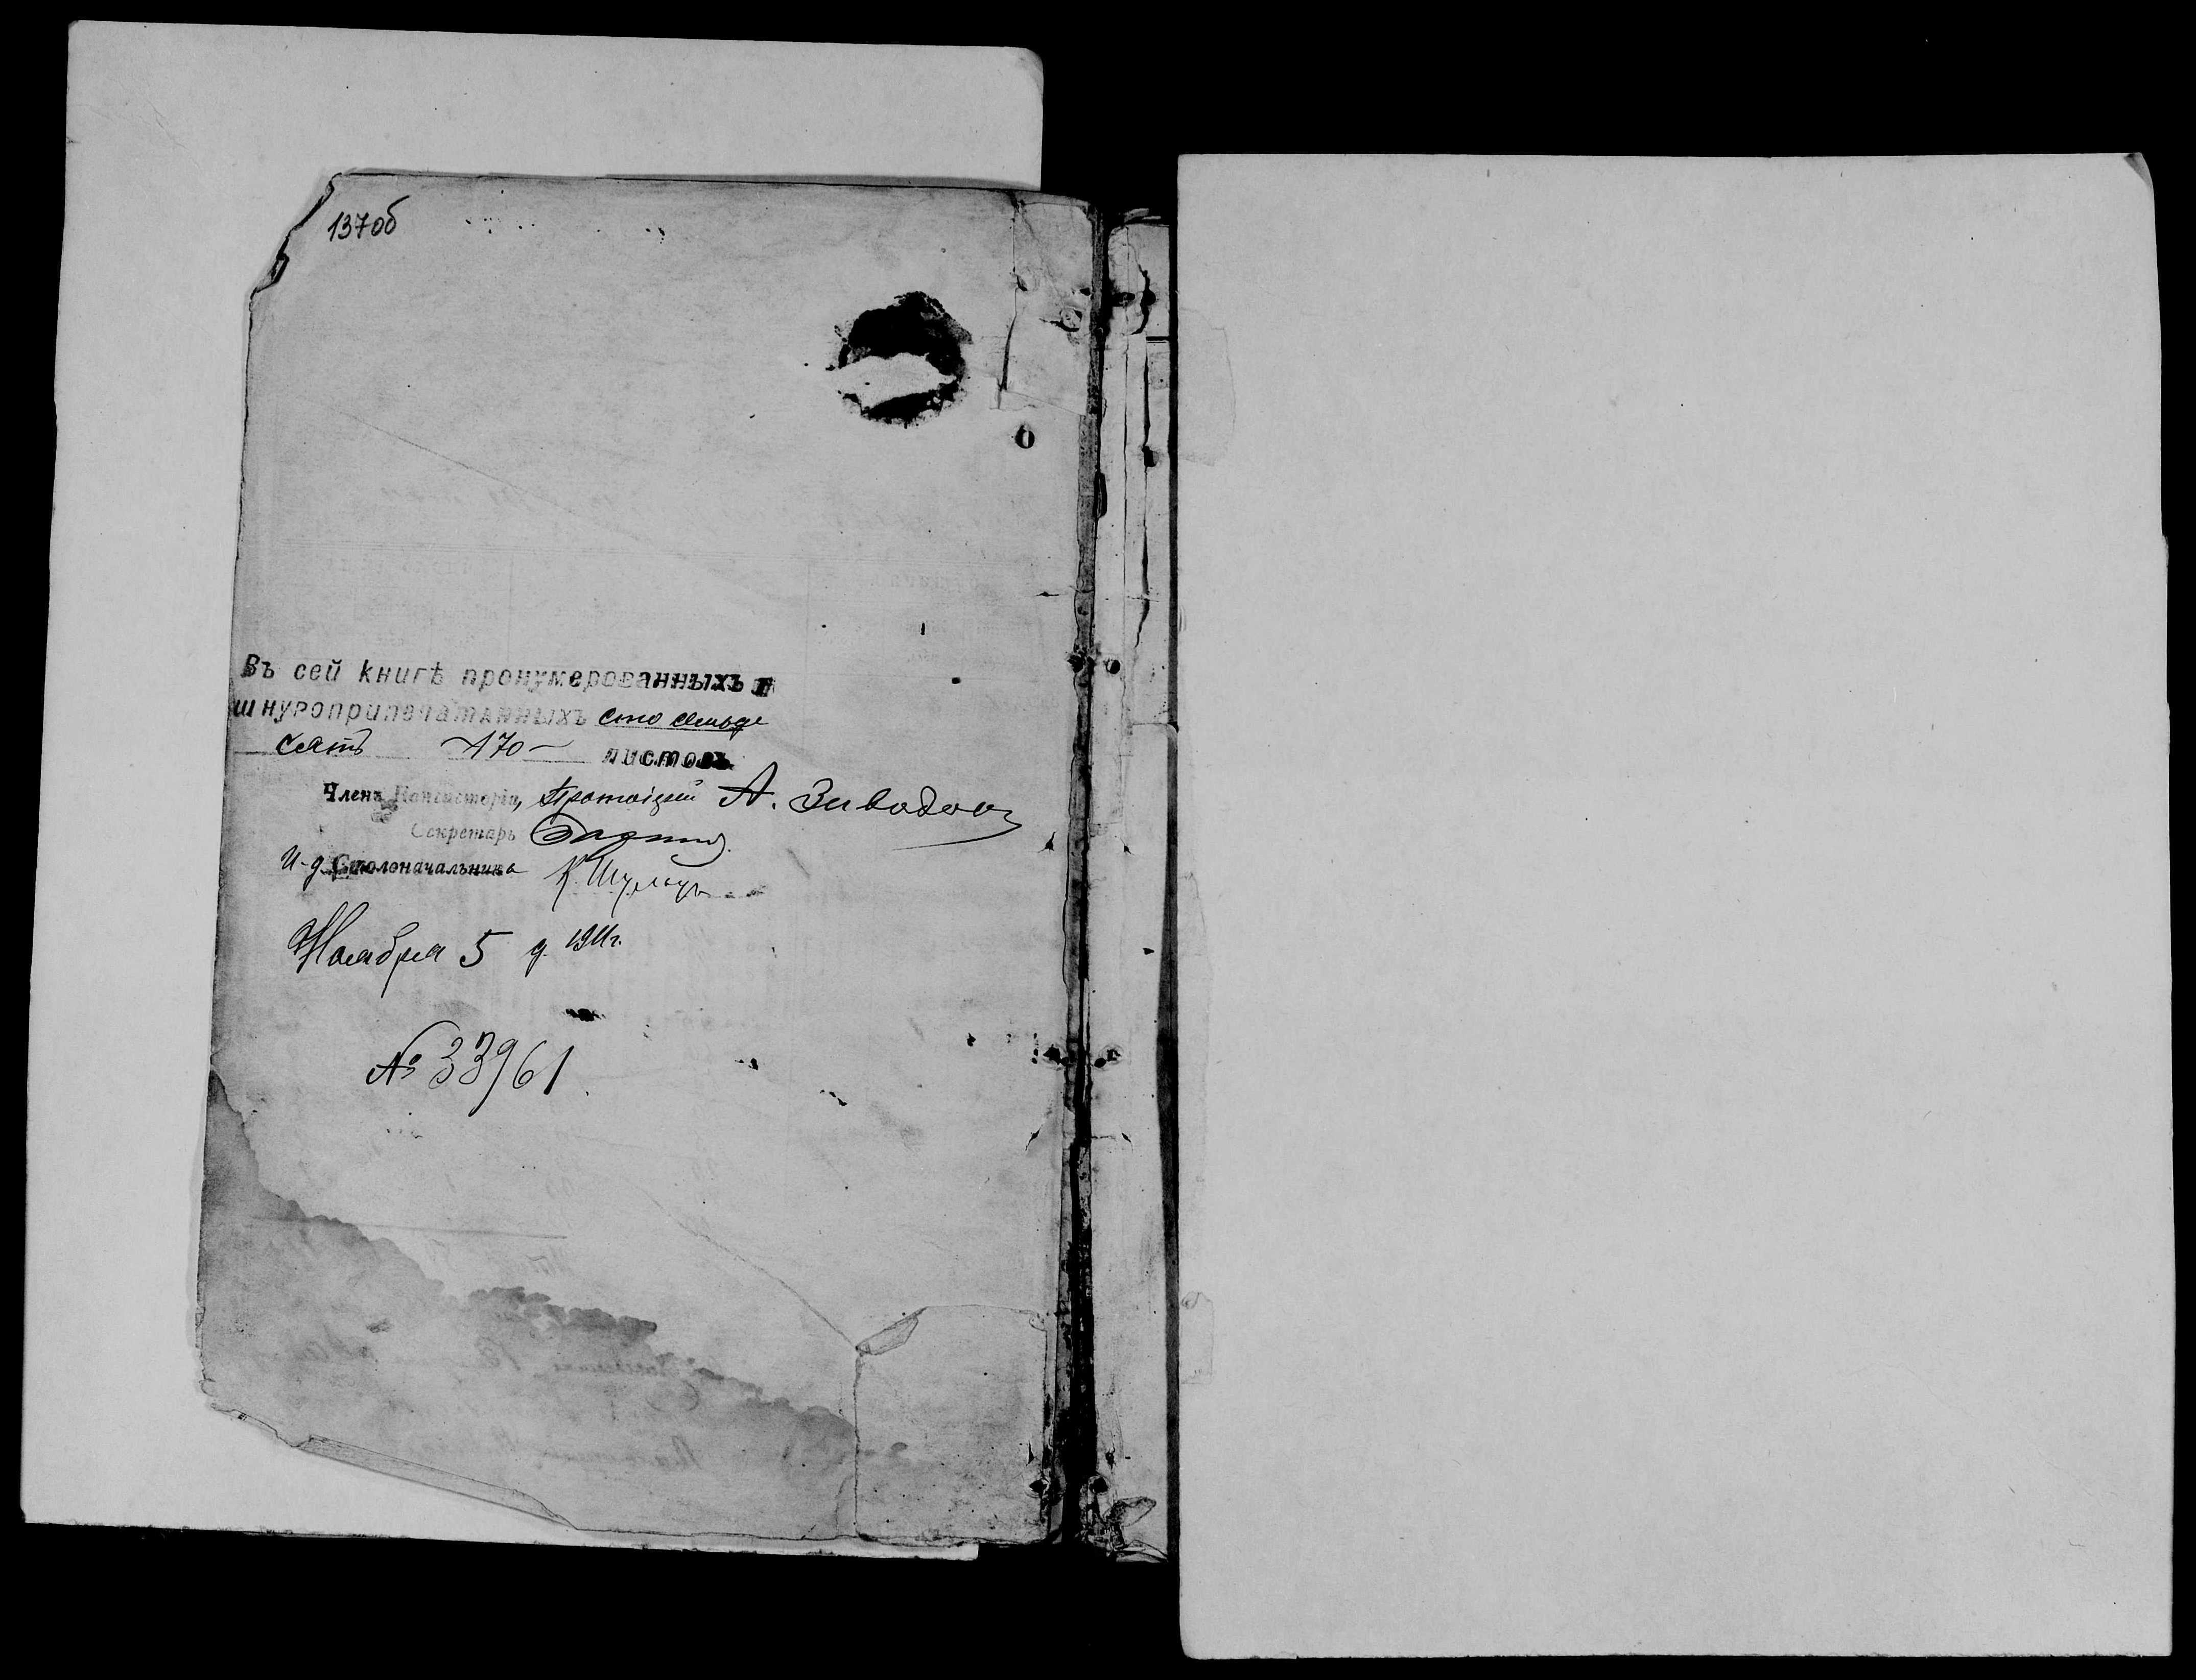 137об
Въ сей книгѣ пронумерованныхъ и
шнуроприпечатанныхъ сто семьде
сятъ 170 листовъ
Членъ Консисторіи, Протоіерей А.
Секретарь
И. д. Столоначальника К. Шульцъ
Ноября 5 д. 1911 г.
№ 33961